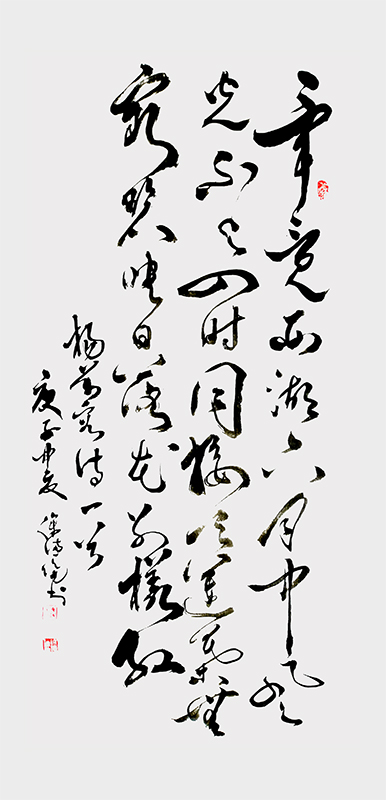 毕竟西湖六月中风
光不与四时同接天莲葉無
穷碧映日荷花别樣红
杨萬里诗一首
庚子中夏 徐 书